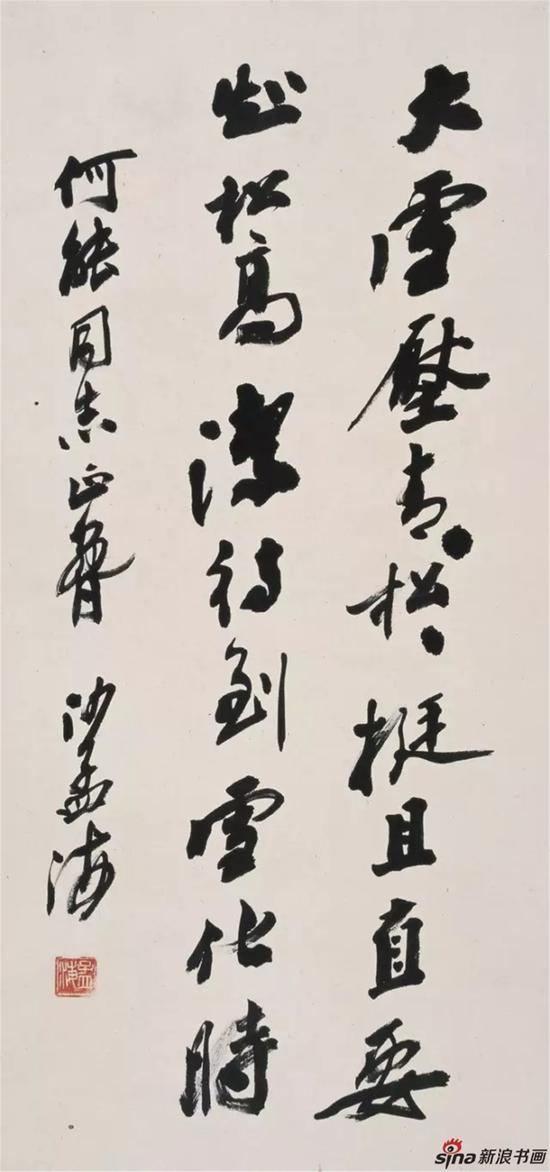 大雪壓青〻松〻挺且直要
知松高潔待到雪化時
何能同志正 沙孟海
孟海
sina新浪书画